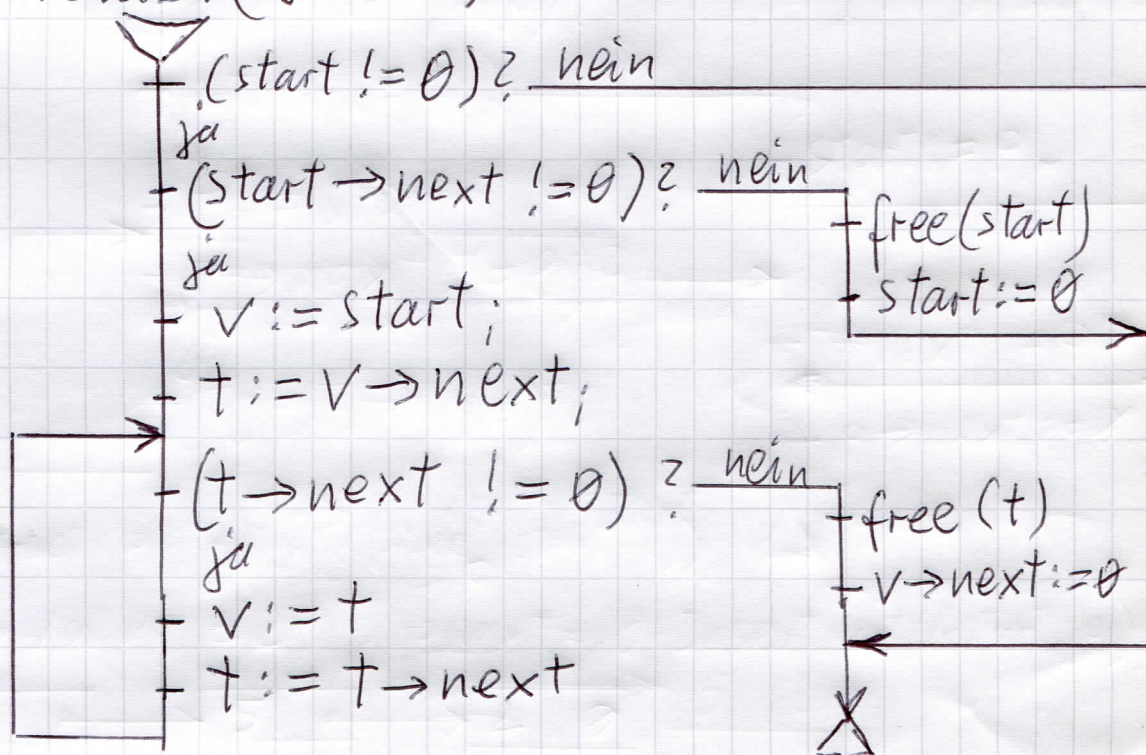 (start != 0)? nein
ja
(start → next != 0)? nein
free(start)
ja
start := 0
v := start;
t := v → next;
(t → next != 0) ? nein
free (t)
ja
v → next := 0
v := t
t := t → next